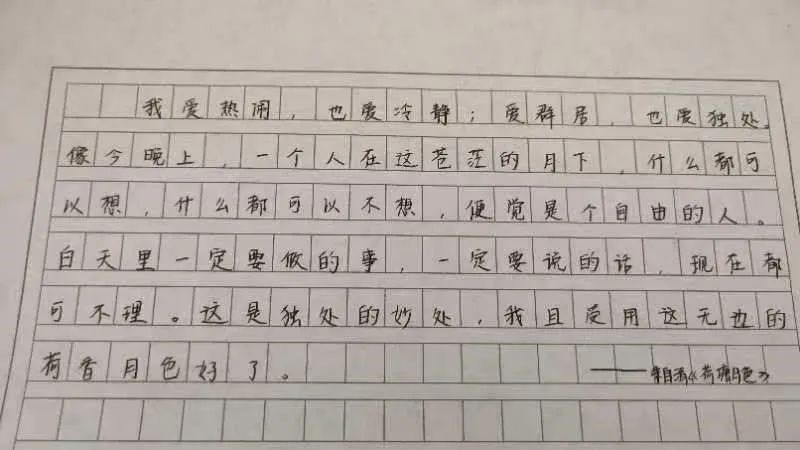 我爱热闹，也爱冷静；爱群居，也爱独处。
像今晚上，一个人在这苍茫的月下，什么都可
以想，什么都可以不想，便觉是个自由的人。
白天里一定要做的事，一定要说的话，现在都
可不理。这是独处的妙处，我且受用这无边的
荷香月色好了。
——朱自清《荷塘月色》